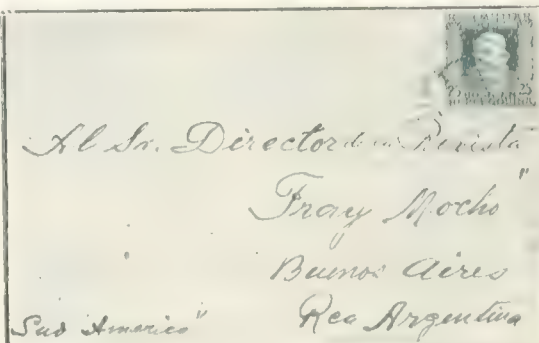 Al Sr. Director de la Revista
Fray Mocho"
Buenos Aires
Rca Argentina
Sud America"
25 25